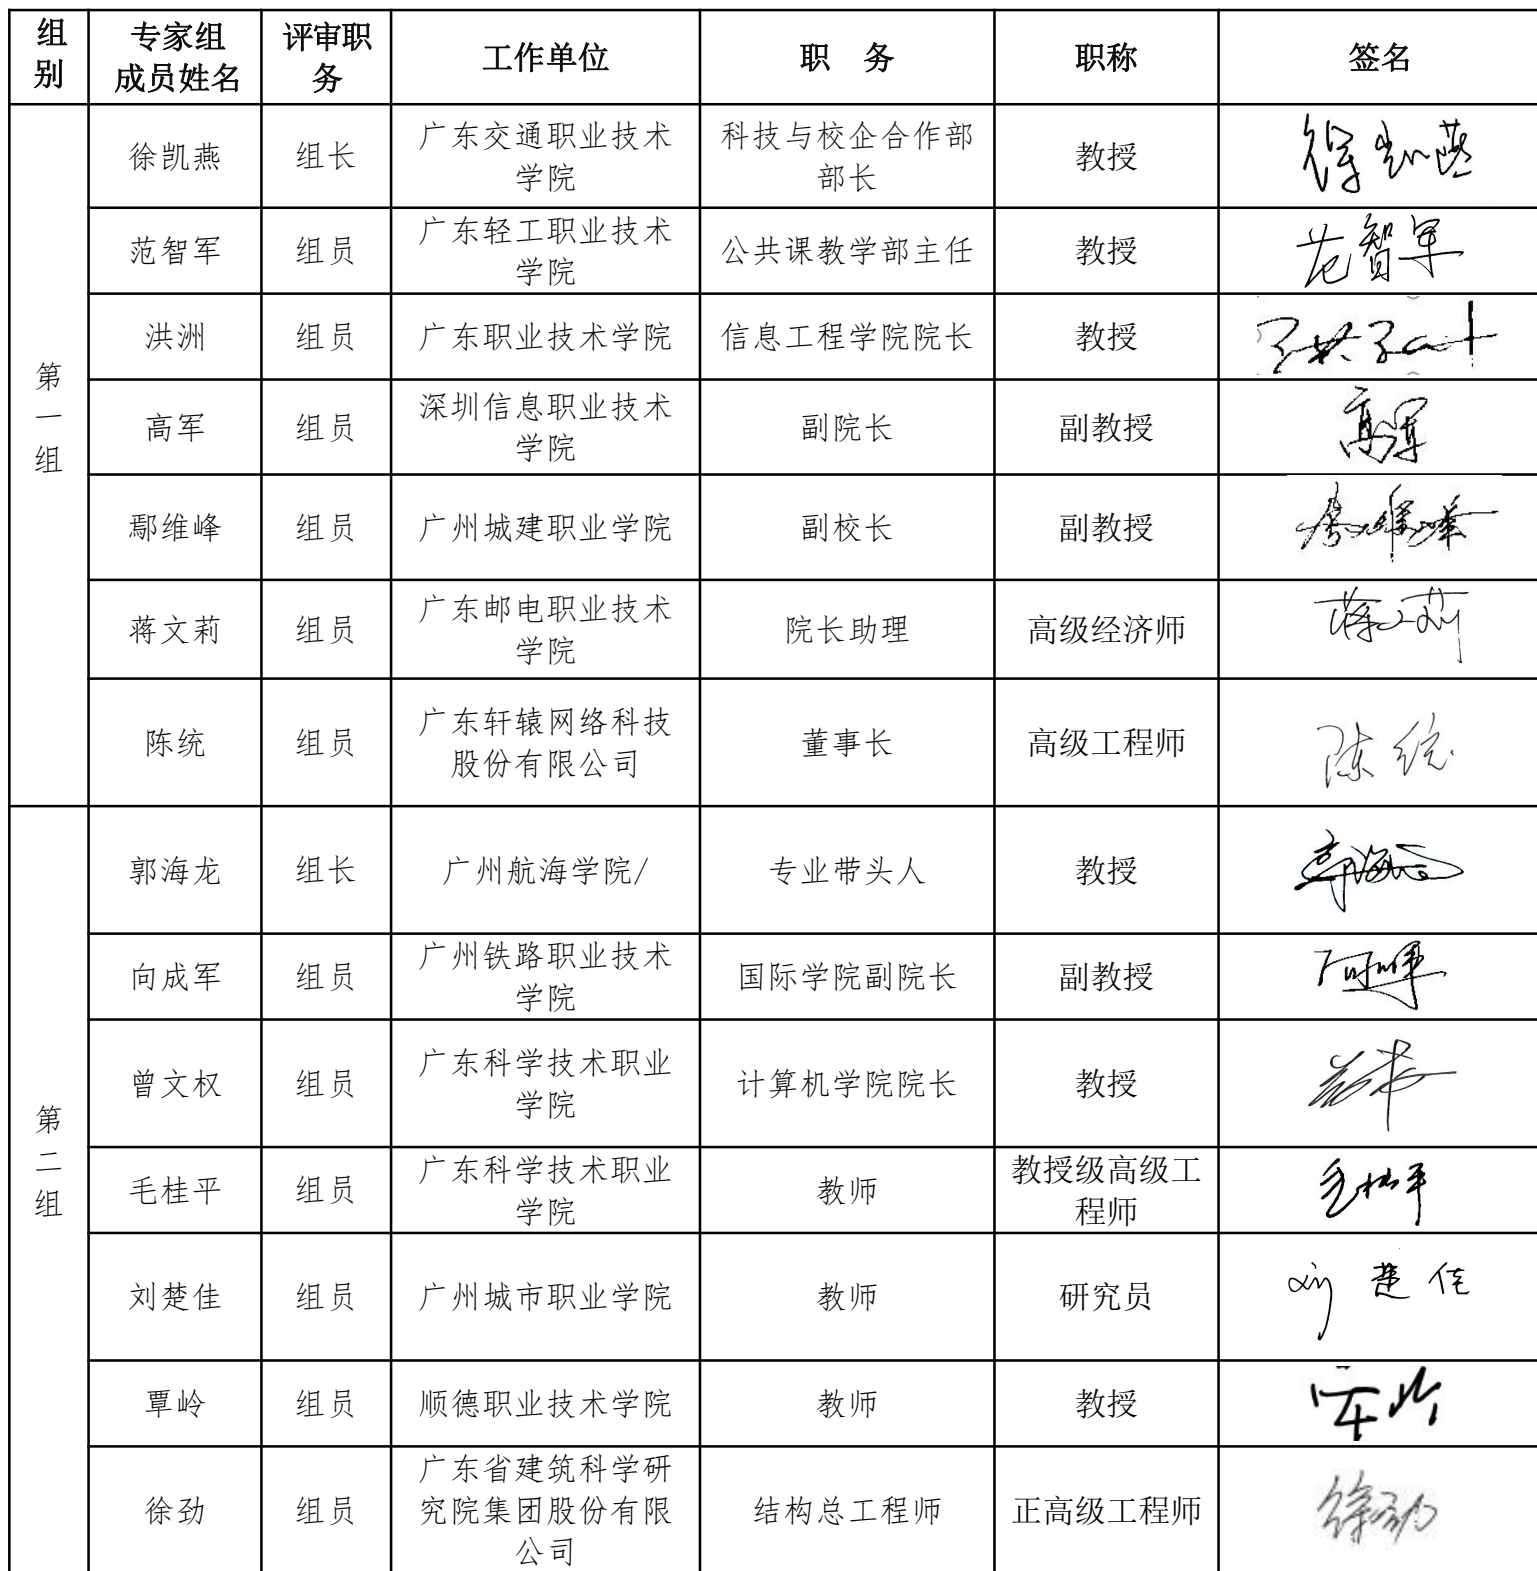 组别 专家组成员姓名 评审职务 工作单位 职 务 职称 签名
第一组
徐凯燕 组长 广东交通职业技术学院 科技与校企合作部部长 教授 徐凯燕
范智军 组员 广东轻工职业技术学院 公共课教学部主任 教授 范智军
洪洲 组员 广东职业技术学院 信息工程学院院长 教授 洪洲
高军 组员 深圳信息职业技术学院 副院长 副教授 高军
鄢维峰 组员 广州城建职业学院 副校长 副教授 鄢维峰
蒋文莉 组员 广东邮电职业技术学院 院长助理 高级经济师 蒋文莉
陈统 组员 广东轩辕网络科技股份有限公司 董事长 高级工程师 陈统
第二组
郭海龙 组长 广州航海学院/ 专业带头人 教授 郭海龙
向成军 组员 广州铁路职业技术学院 国际学院副院长 副教授 向成军
曾文权 组员 广东科学技术职业学院 计算机学院院长 教授
毛桂平 组员 广东科学技术职业学院 教师 教授级高级工程师 毛桂平
刘楚佳 组员 广州城市职业学院 教师 研究员 刘楚佳
覃岭 组员 顺德职业技术学院 教师 教授 覃岭
徐劲 组员 广东省建筑科学研究院集团股份有限公司 结构总工程师 正高级工程师 徐劲